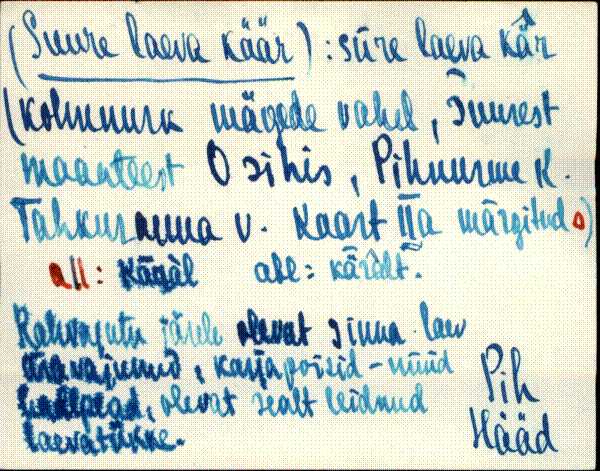 (Suure laeva käär) : süre laeva kär
(Kolmnurk mägede vahel, Suurest
maanteest O sihis, Pihnurme k.
Tahkuranna v. Kaart IIa märgitud)
all: käräl abl: kärält.
Rahvajutu järele olevat sinna laev
ära vajunud, karjapoisid - nüüd
olevat sealt leidnud
laevatükke.
Pih
Hääd